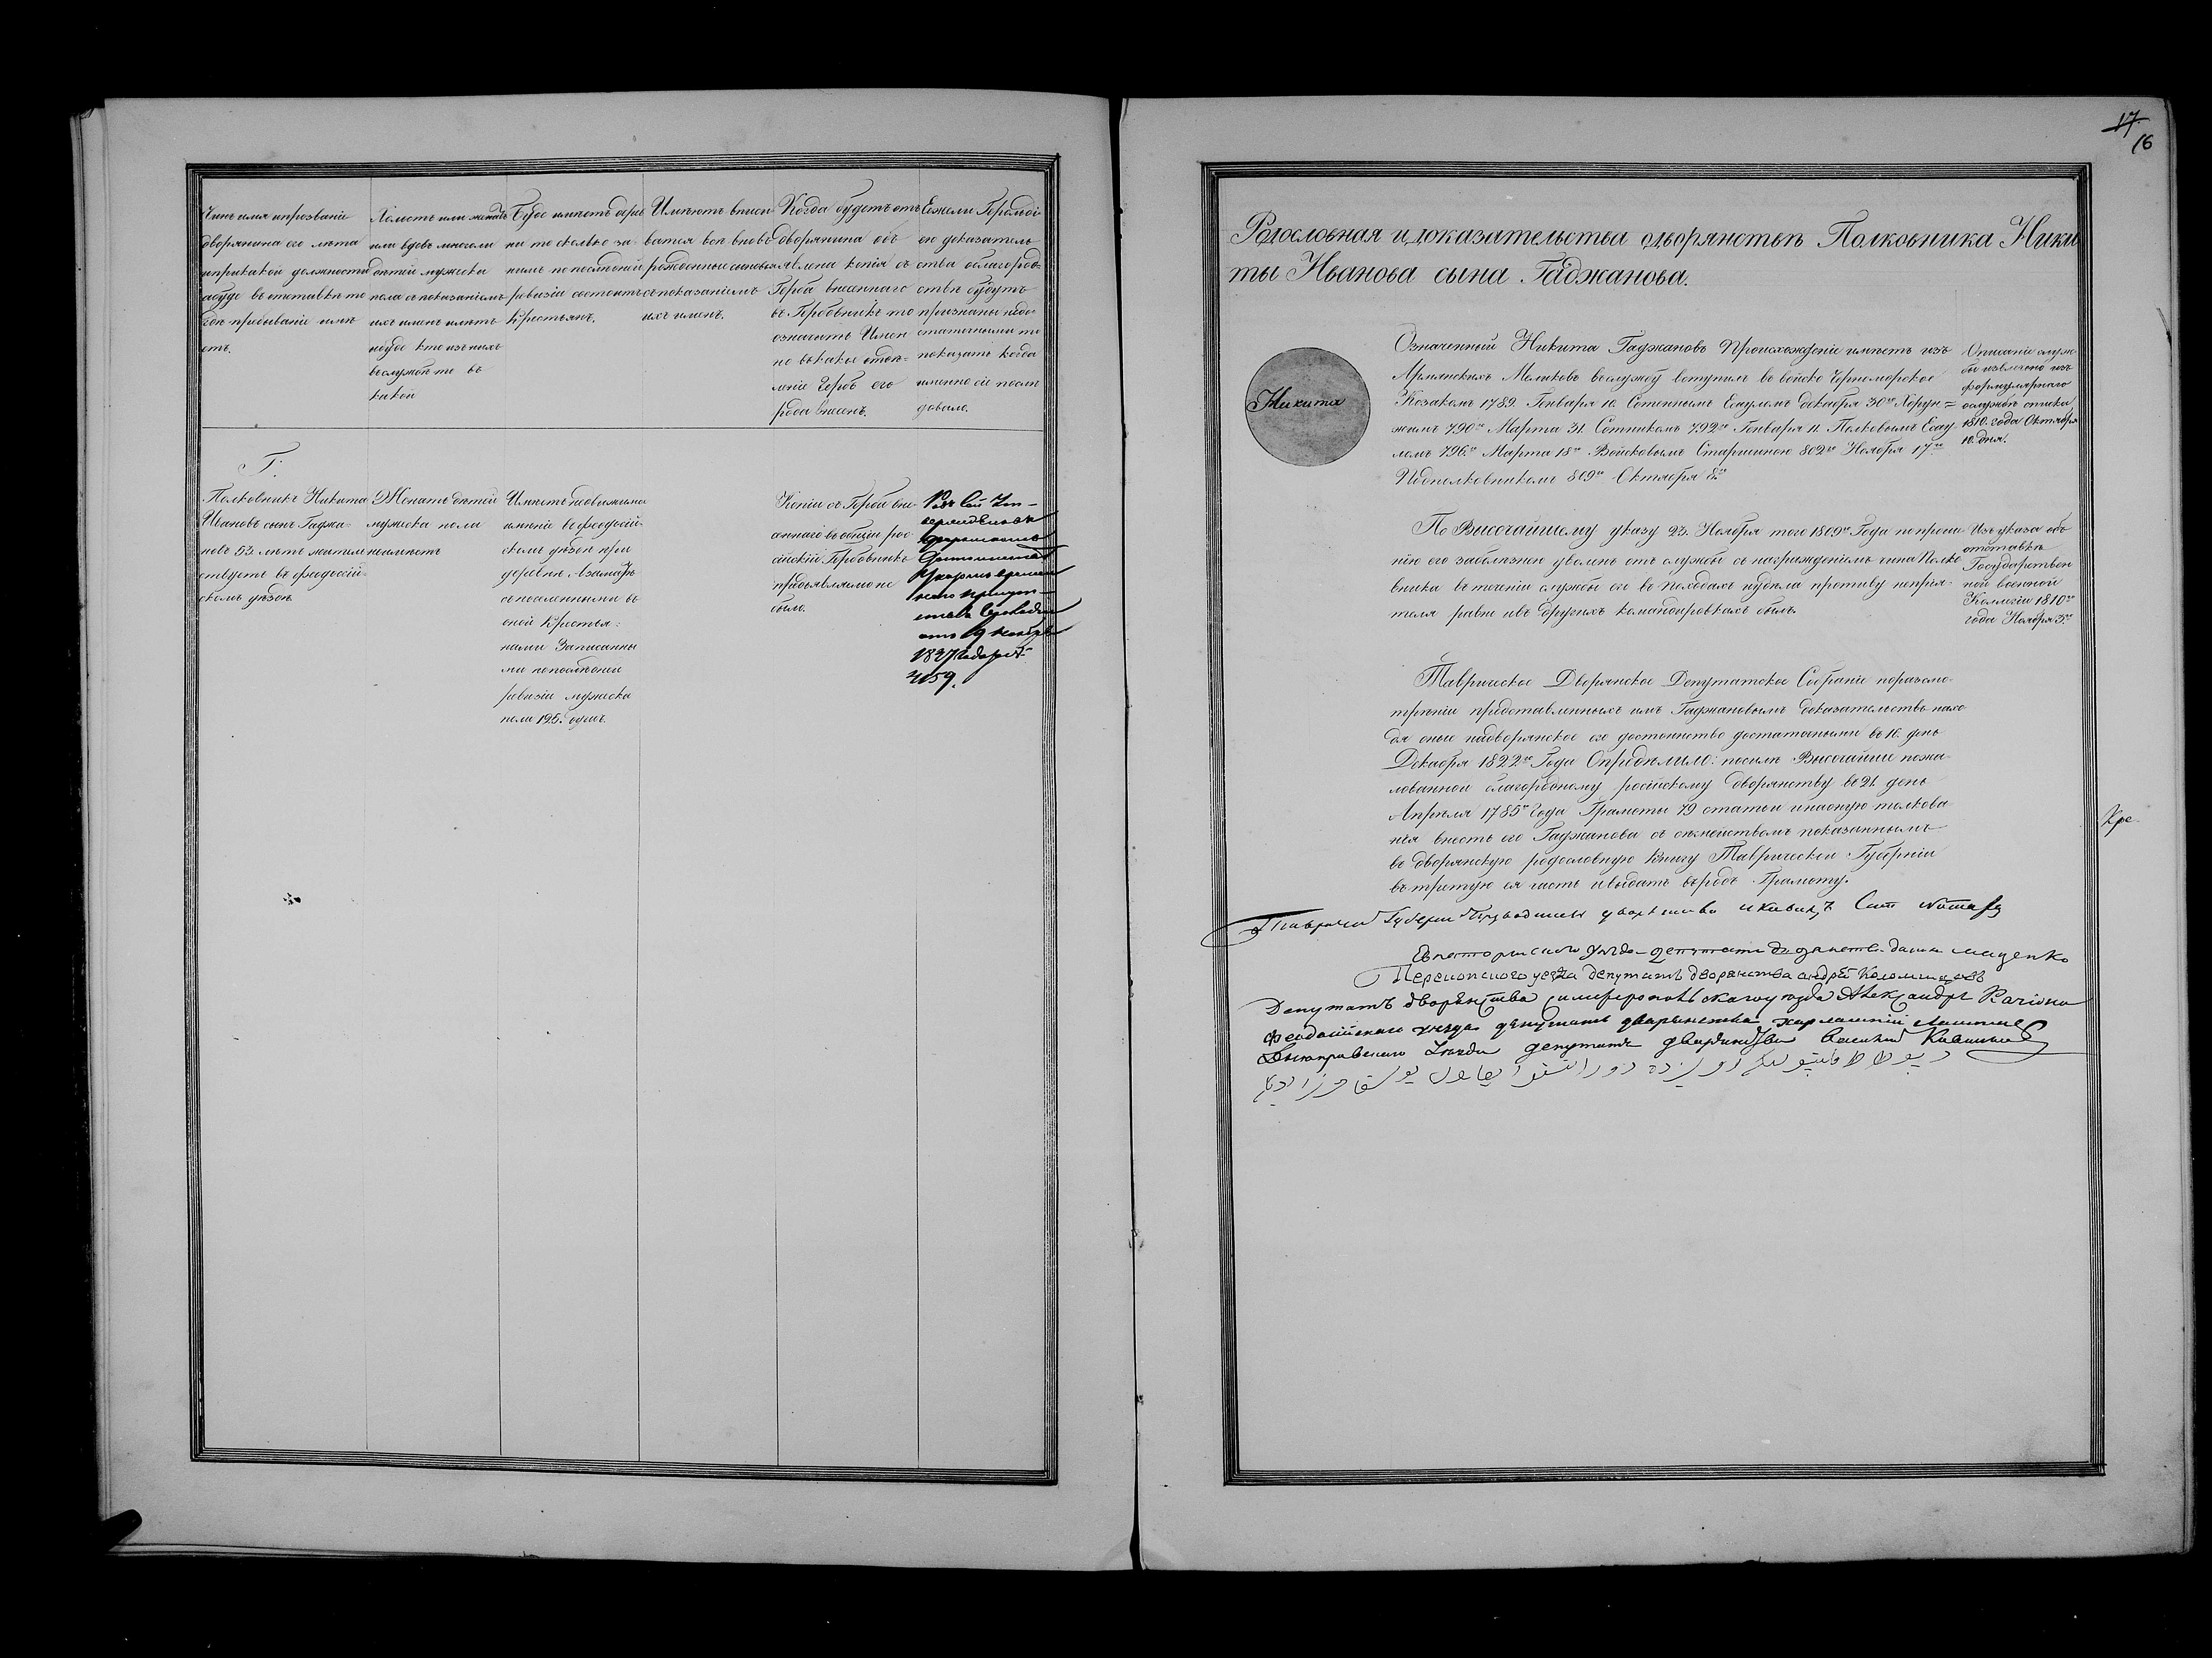 Чинъ имя ипрозваніе
дворянина его лѣта
иприкакой должности
абуде вотставкѣ то
гдѣ пребываніе имѣ
етъ.
Холостъ или женатъ
или вдовъ имноголи
дѣтей мужеска
пола спаказаніемъ
ихъ именъ илѣтъ
ибуде кто изъ нихъ
вслужбѣ то въ
какой
Буде имѣетъ дерев
ни то сколько за
нимъ попослѣдней
ревизіи состоитъ
Крестьянъ.
Имѣютъ вписы
ватся всѣ вновь
рожденные сыновья
споказаніемъ
ихъ именъ.
Когда будетъ отъ
дворянина объ
явлена копія съ
Герба внесеннаго
въ Гербовникъ то
означить Имян
но въкакое отдѣ=
леніе Гербъ его
рода внесенъ.
Ежели Герольді
ею доказатель
ства облагород=
ствѣ будутъ
признаны недо=
статочными то
показать когда
именно сіе послѣ
довало.
Г.
Полковникъ Никита
Ивановъ сынъ Гаджа=
новъ 53. лѣтъ жител
ствуетъ въ феодосій=
скомъ уѣздѣ.
Женатъ дѣтей
мужеска пола
неимѣетъ
Имѣетъ недвижимое
имѣніе въ феодосій=
скомъ уѣздѣ при
деревнѣ Азаматъ
споселенными въ
оной Крестья=
нами Записанны
ми попослѣдней
ревизіи мужеска
пола 125. душъ.
Копіи съ Герба вне=
сеннаго въ общій рос
сійскій Гербовникъ
предъявлено не
было.
Родъ сей Ут=
вержденъ въ
дворянскомъ
Достоинствѣ
Указомъ времен
наго присут=
ствія Герольдіи
отъ 19 Ноября
1837 года за №
4159.
17
16
Родословная идоказательства одворянствѣ Полковника Ники
ты Иванова сына Гаджанова.
Никита
Означенный Никита Гаджановъ Происхожденіе имѣетъ изъ
Армянскихъ Меликовъ вслужбу вступилъ въ войско Черноморское
Козакомъ 1789. Генваря 10. Сотеннымъ Есауломъ декабря 30го Хорун=
жимъ 790го Марта 31. Сотникомъ 792го Генваря 11. Полковымъ Есау
ломъ 796го Марта 18го Войсковымъ Старшиною 802го Ноября 17го
Подполковникомъ 809го Октября 8го
Описаніе служ
бы извлечено изъ
формулярнаго
ослужбѣ списка
1810. года Октября
10. дня.
По Высочайшему указу 23. Ноября того 1809го Года попроше
нію его заболѣзнію уволенъ отъ службы съ награжденіемъ чина Полко
вника въ теченіи службы его въ Походахъ идѣлахъ противу неприя=
теля равно ивъ другихъ командировкахъ былъ.
Изъ указа объ
отставкѣ
Государствен
ной военной
Коллегіи 1810го
года Ноября 3го
Таврическое Дворянское Депутатское Собраніе поразсмо=
трѣніи представленныхъ имъ Гаджановымъ доказательствъ нахо
дя оные надворянское его достоинство достаточными въ 16. день
Декабря 1822го Года Опредѣлило: посилѣ Высочайше пожа=
лованной благородному россійскому дворянству въ 21. день
Апрѣля 1785го Года Грамоты 79 статьи инаоную толкова
нія внесть его Гаджанова съ семействомъ показаннымъ
въ дворянскую родословную Книгу Таврической Губерніи
въ третую ея часть ивыдать въродъ Грамоту.
Хре
Депутатъ дворянства Симферопольскаго уезда Александръ
Перекопского уезда депутатъ дворянства андрей
феодосійскаго уезда депутатъ дворянства
Днепровскаго Уезда депутатъ дворянства Василий